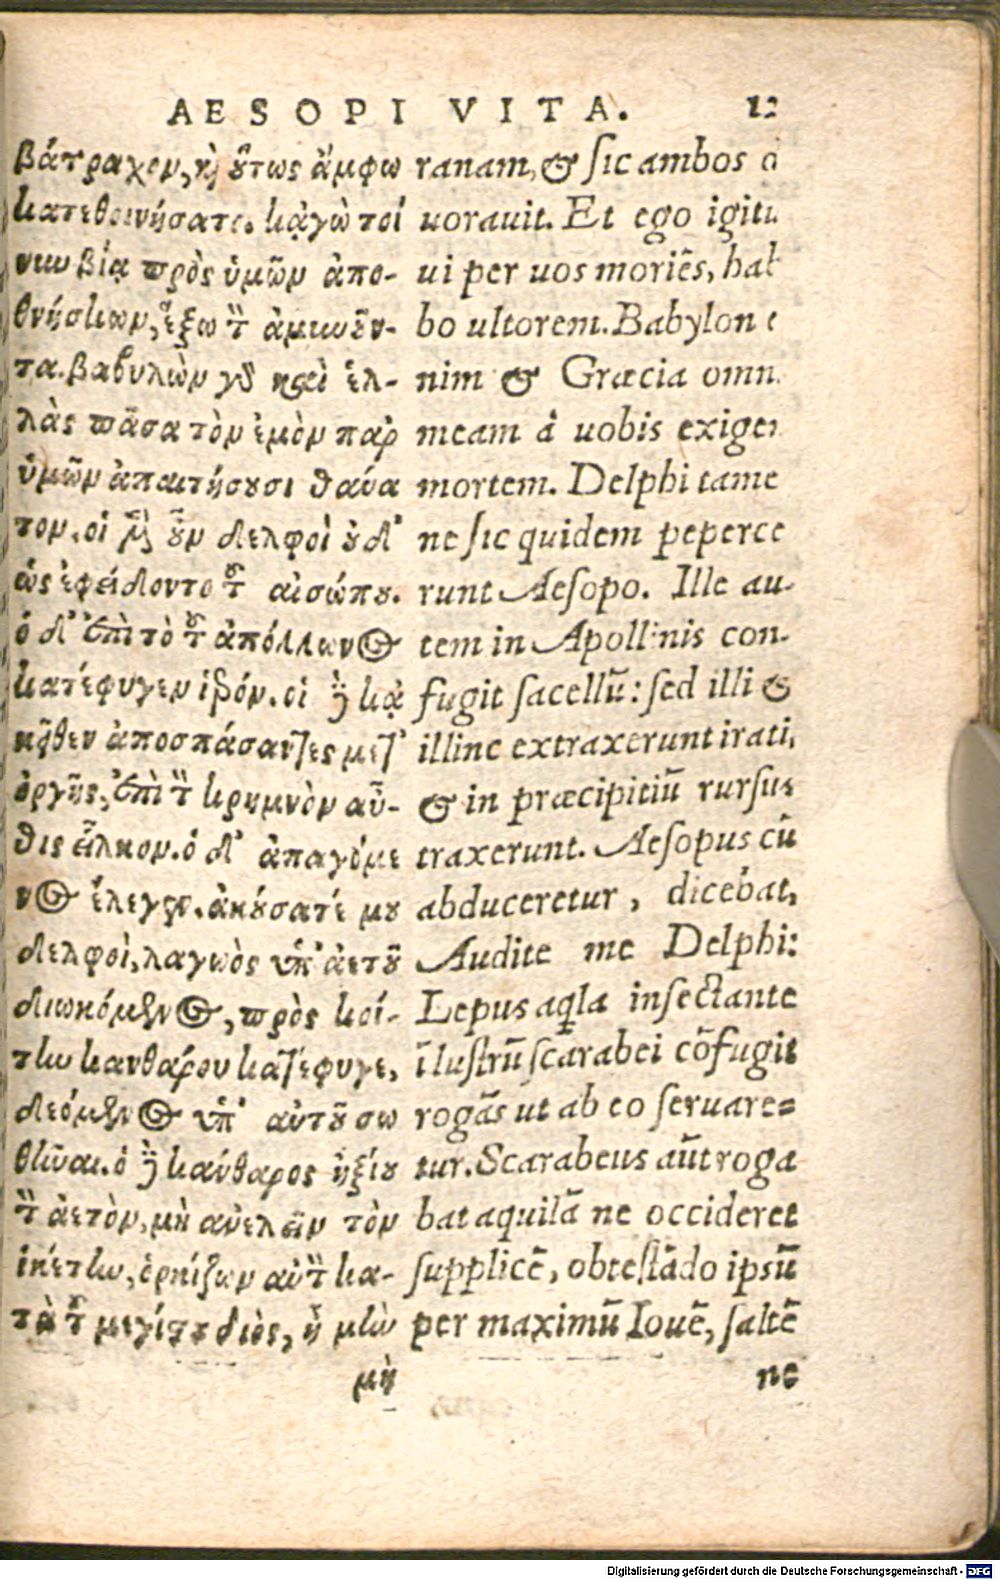 AESOPI VITA.
βάτραχον, καὶ οὕτως ἄμφω
κατεθοινήσατο. κἀγὼ τοί
νυν βίᾳ πρὸς ὑμῶν ἀπο-
θνήσκων, ἕξω τὸν ἀμυνοῦν-
τα. βαβυλὼν γὰρ καὶ ἑλ-
λὰς πᾶσα τὸν ἐμὸν παρ
ὑμῶν ἀπαιτήσουσι θάνα
τον. οἱ μὲν οὖν δελφοὶ οὐδ'
ὡς ἐφείδοντο τοῦ αἰσώπου.
ὁ δ' ἐπὶ τὸ τοῦ ἀπόλλωνος
κατέφυγεν ἱερόν. οἱ δὲ κᾀ
κεῖθεν ἀποσπάσαντες μετ'
ὀργῆς, ἐπὶ τὸν κρημνὸν αὖ-
θις εἷλκον. ὁ δ' ἀπαγόμε
νος ἔλεγεν. ἀκούσατέ μου
δελφοὶ, λαγωὸς ὑπ' ἀετοῦ
διωκόμενος, πρὸς κοί-
την κανθάρου κατέφυγε,
δεόμενος ὑπ' αὐτοῦ σω
θῆναι. ὁ δὲ κάνθαρος ἠξίου
τὸν ἀετὸν, μὴ ἀνελεῖν τὸν
ἱκέτην, ὁρκίζων αὐτὸν κα-
τὰ τοῦ μεγίστου διὸς, ἦ μὴν
μὴ
ranam, & sic ambos
uorauit. Et ego
ui per uos moriēs,
bo ultorem. Babylon
nim & Græcia
meam á uobis
mortem. Delphi tame
ne sic quidem peperce
runt Aesopo. Ille au-
tem in Apollinis con-
fugit sacellū: sed illi &
illinc extraxerunt irati,
& in præcipitiū rursus
traxerunt. Aesopus cū
abduceretur, dicebat,
Audite me Delphi:
Lepus aq̄la insectante
ī lustrū scarabei cōfugit
rogās ut ab eo seruare=
tur. Scarabeus aūt roga
bat aquilā ne occideret
supplicē, obtestādo ipsū
per maximū Iouē, saltē
ne
Digitalisierung gefördert durch die Deutsche Forschungsgemeinschaft - DFG